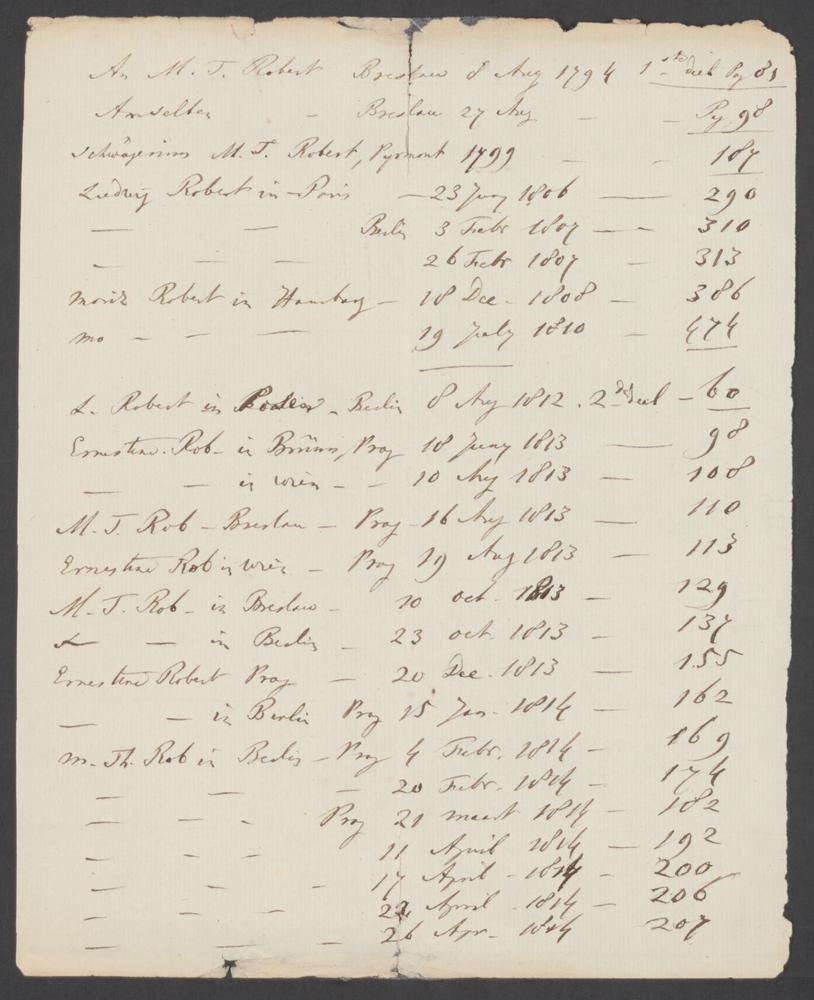 An M. T. Robert Breslau 8 Aug 1794 1ste deel Pg 81
Amselben - Breslau 27 Aug - - Pg 98
Schwägerinn M. T. Robert, Pyrmont 1799 - - 187
Ludwig Robert in Paris - 23 1806 — 290
— — Berlin 3 Febr 1807 — - 310
- - — 26 Febr 1807 — 313
Moritz Robert in Hamburg - 18 Dec - 1808 — 386
Mo - - — 19 July 1810 — 474
L. Robert in - Berlin 8 Aug 1812 . 2de deel - 60
Ernestine Rob - in Brünn, Prag 18 Juny 1813 — 98
— — in Wien - - 10 Aug 1813 — 108
M. T. Rob - Breslau - Prag - 16 Aug 1813 — 110
Ernestine Rob in Wien - Prag 19 Aug 1813 — 113
M. T. Rob - in Breslau - 10 oct - 1813 - 129
— - in Berlin - 23 oct. 1813 — 137
Ernestine Robert Prag — - 20 Dec. 1813 — 155
— — in Berlin Prag 15 Jan - 1814 — 162
M. Th. Rob in Berlin - Prag 4 Febr. 1814 - 169
— — — - 20 Febr. 1814 - 174
— — - Prag 21 maart 1814 — 182
— - - 11 April 1814 — 192
— - - - 17 April - 1814 — 200
— — - - 22 April - 1814 — 206
— — — - 26 Apr - 1814 — 207